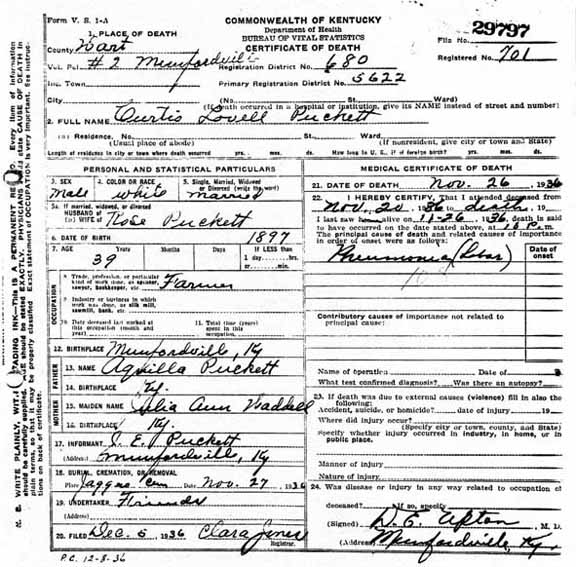 Form V. S. 1-A
COMMONWEALTH OF KENTUCKY
Department of Health
BUREAU OF VITAL STATISTICS
CERTIFICATE OF DEATH
29797
File No.
Registered No. 701
1. PLACE OF DEATH
County Hart
Vot. Pct. #2 Munfordville Registration District No. 680
Inc. Town Primary Registration District No. 5622
City (No. St. Ward)
(If death occurred in a hospital or institution, give its NAME instead of street and number)
2. FULL NAME Curtis Lovell Puckett
(a) Residence. No. St. Ward
(Usual place of abode) (If nonresident, give city or town and State)
Length of residence in city or town where death occurred yrs. mos. ds. How long in U. S., if of foreign birth? yrs. mos. ds.
PERSONAL AND STATISTICAL PARTICULARS
3. SEX 4. COLOR OR RACE 5. Single, Married, Widowed or Divorced (write the word)
Male white married
5a. If married, widowed, or divorced
HUSBAND of
(or) WIFE of Rose Puckett
6. DATE OF BIRTH 1897
7. AGE Years Months Days If LESS than
39 1 day, hrs.
or min.
OCCUPATION
8 Trade, profession, or particular
kind of work done, as spinner,
sawyer, bookkeeper, etc. Farmer
9 Industry or business in which
work was done, as silk mill,
sawmill, bank, etc.
10 Date deceased last worked at
this occupation (month and
year)
11. Total time (years)
spent in this
occupation
12. BIRTHPLACE Munfordville, Ky
FATHER
13. NAME Aquilla Puckett
14. BIRTHPLACE Ky.
MOTHER
15. MAIDEN NAME Ann Waddell
16. BIRTHPLACE Ky.
17. INFORMANT Puckett
(Address) Munfordville, Ky
18. BURIAL, CREMATION, OR REMOVAL
Place Cem Date Nov. 27, 1936
19. UNDERTAKER Friends
(Address)
20. FILED Dec 5 1936 Clara Jones
Registrar.
P.C. 12-8-36
MEDICAL CERTIFICATE OF DEATH
21. DATE OF DEATH Nov. 26, 1936
22. I HEREBY CERTIFY, That I attended deceased from
Nov. 20, 1936 to death, 19
I last saw alive on 11-26 1936, death is said
to have occurred on the date stated above, at P. m.
The principal cause of death and related causes of importance
in order of onset were as follows:
Date of
onset
Pneumonia (Lobar)
Contributory causes of importance not related to
principal cause:
Name of operation Date of
What test confirmed diagnosis? Was there an autopsy?
23. If death was due to external causes (violence) fill in also the
following:
Accident, suicide, or homicide? date of injury , 19
Where did injury occur?
(Specify city or town, county, and State)
Specify whether injury occurred in industry, in home, or in
public place.
Manner of injury
Nature of injury
24. Was disease or injury in any way related to occupation of
deceased? If so, specify
(Signed) , M. D.
(Address) Munfordville, Ky.